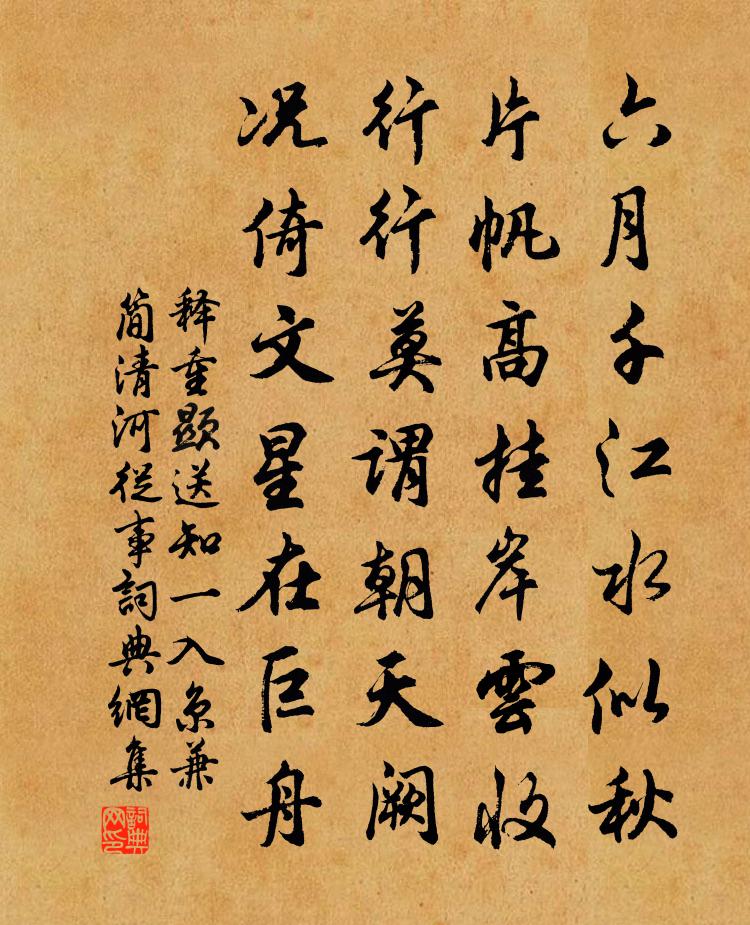 六月千江水似秋
片帆高挂岸雲收
行行莫謂朝天闕
况倚文星在巨舟
释重顯送知一入京兼
简清河從事詞典網集
詞典网印